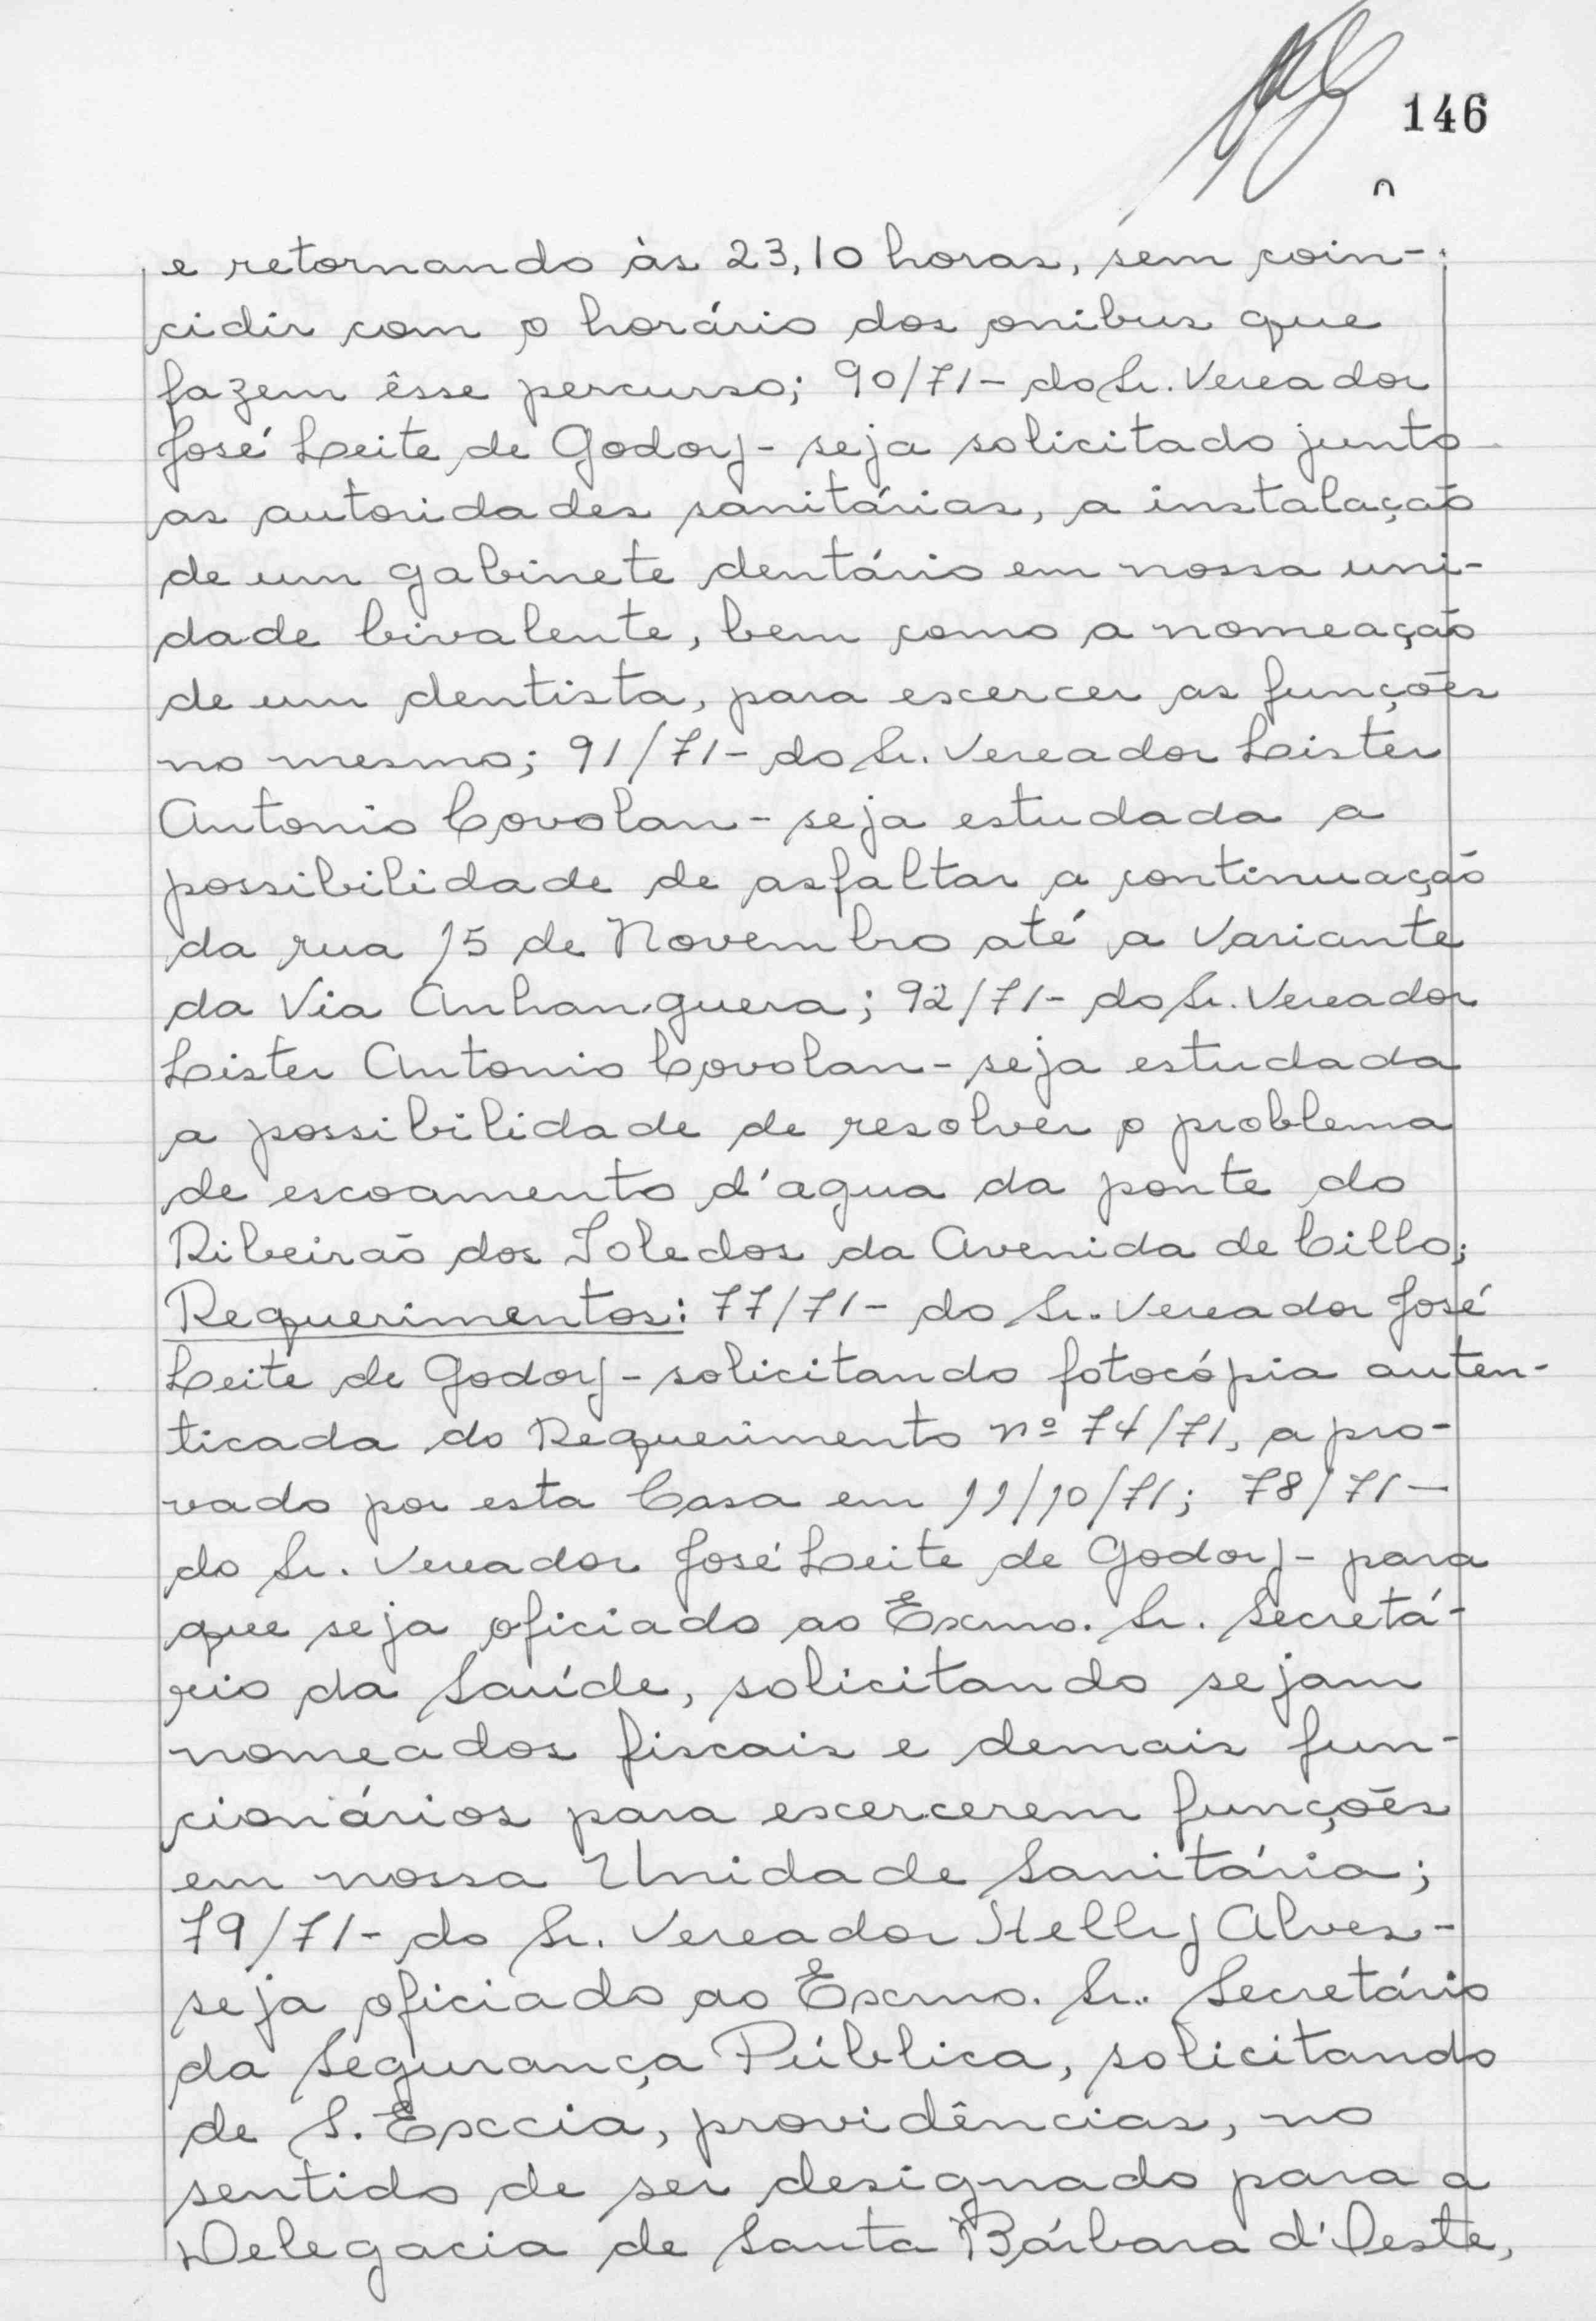 146
e retornando às 23,10 horas, sem coin-
cidir com o horário dos onibus que
fazem êsse percurso; 90/71- do Sr. Vereador
José Leite de Godoy - seja solicitado junto
as autoridades sanitárias, a instalação
de um gabinete dentário em nossa uni-
dade bivalente, bem como a nomeação
de um dentista, para escercer as funções
no mesmo; 91/71- do Sr. Vereador Lister
Antonio Covolan - seja estudada a
possibilidade de asfaltar a continuação
da rua 15 de Novembro até a Variante
da Via Anhanguera; 92/71- do Sr. Vereador
Lister Antonio Covolan - seja estudada
a possibilidade de resolver o problema
de escoamento d'agua da ponte do
Ribeirão dos Toledos da Avenida de Cillo;
Requerimentos: 77/71- do Sr. Vereador José
Leite de Godoy - solicitando fotocópia auten-
ticada do Requerimento nº 74/71, apro-
vado por esta Casa em 11/10/71; 78/71-
do Sr. Vereador José Leite de Godoy - para
que seja oficiado ao Exmo. Sr. Secretá-
rio da Saúde, solicitando sejam
nomeados fiscais e demais fun-
cionários para escercerem funções
em nossa Unidade Sanitária;
79/71- do Sr. Vereador Helly Alves-
seja oficiado ao Exmo. Sr. Secretário
da Segurança Pública, solicitando
de S. Exccia, providências, no
sentido de ser designado para a
Delegacia de Santa Bárbara d'Oeste,